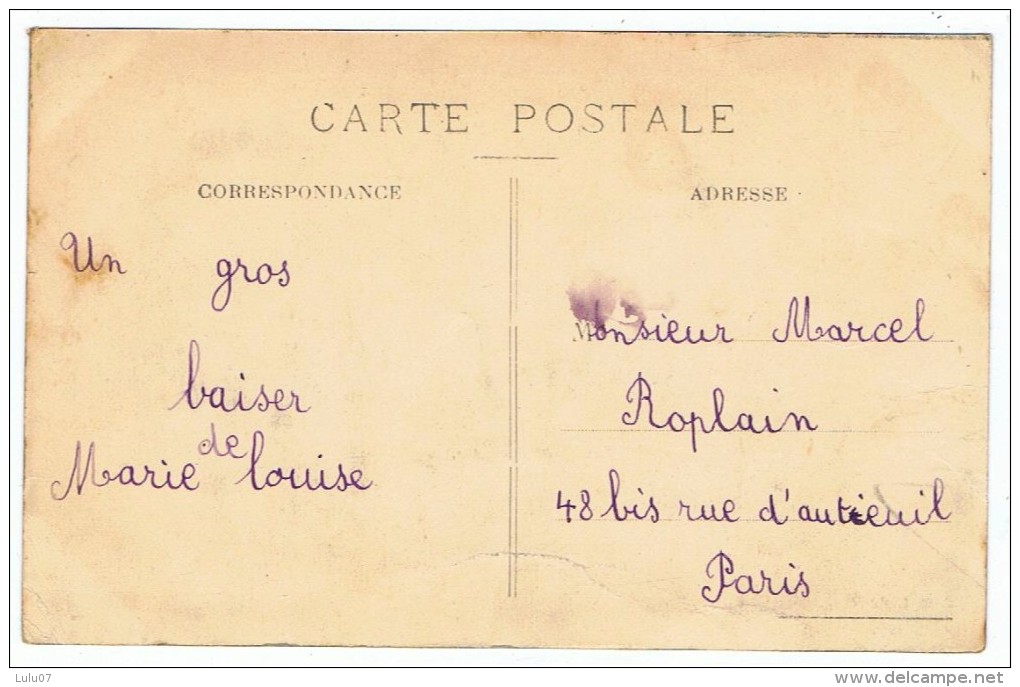 CARTE POSTALE
CORRESPONDANCE
Un gros
baiser
de
Marie louise
ADRESSE
Monsieur Marcel
Roplain
48 bis rue d'auteuil
Paris
Lulu07
delcampe.net